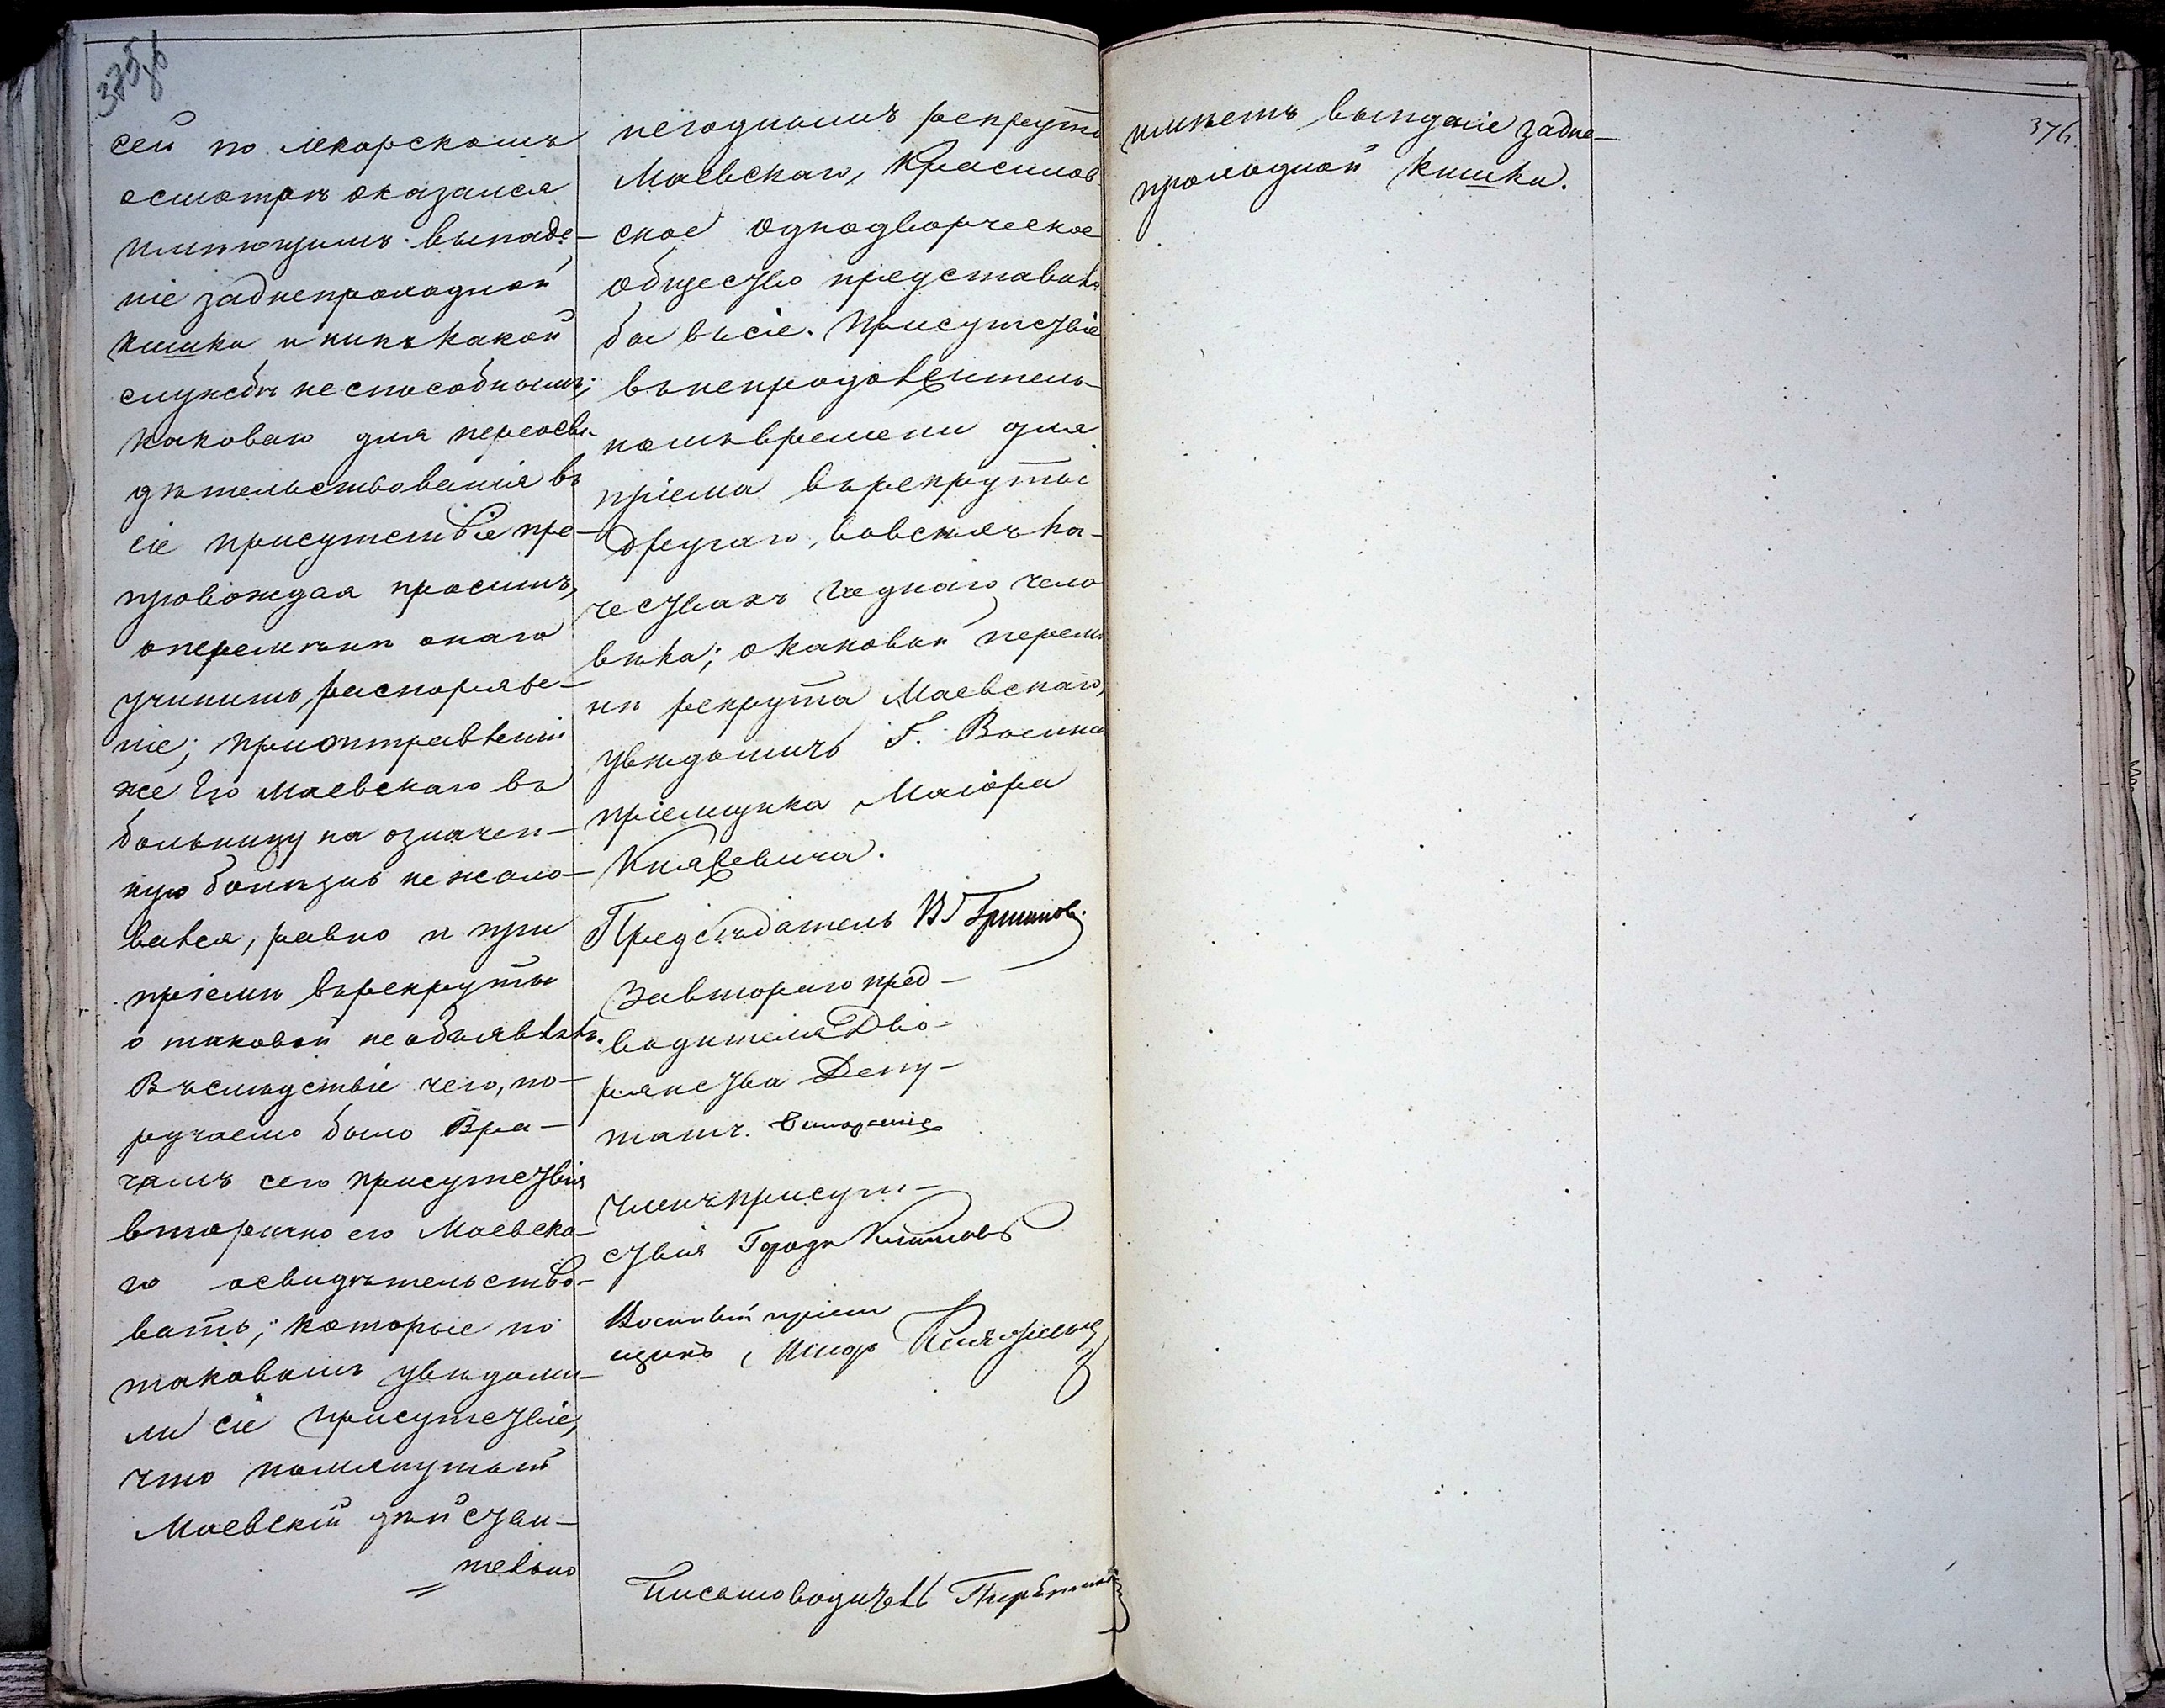 сей по лекарскомъ
осмотрѣ оказался
имѣющимъ выпаде-
ніе заднепроходной
кишки и никъ какой
службѣ неспособнымъ;
каковаго для переосви-
дѣтельствованія въ
сіе присутствіе пре-
провождая проситъ,
о перемѣнѣ онаго
учинить распоряже-
ніе; приотправленіи
же его Маевскаго въ
больницу на означен-
ную болѣзнь не жало-
вался, равно и при
пріемѣ врекруты
о таковой не объявлялъ.
Въслѣдствіе чего, по-
ручаемо было Вра-
чамъ сего присутствія
вторично его Маевска-
го освидѣтельство-
вать; которые по
таковомъ увѣдоми-
ли сіе присутствіе,
что помянутый
Маевскій дѣйстви-
тельно
негоднымъ рекрута
Маевскаго, Красилов-
ское однодворческое
общество представило
бы въсіе Присутствіе
внепродолжитель-
номъ времени для
пріема врекруты
другаго, вовсѣхъ ка-
чествахъ годнаго чело
вѣка; о каковой перемѣ
нѣ рекрута Маевскаго,
увѣдомить Г. Военна
пріемщика Маіора
Княжевича.
Предсѣдатель
За втораго пред-
водителя Дво-
рянства Депу-
татъ.
Членъ присут-
ствія Городн
Военный пріем
щикъ, Маіор Княжевич
Письмоводитель
375 об
имѣетъ выпденіе задне-
проходной кишки.
376.